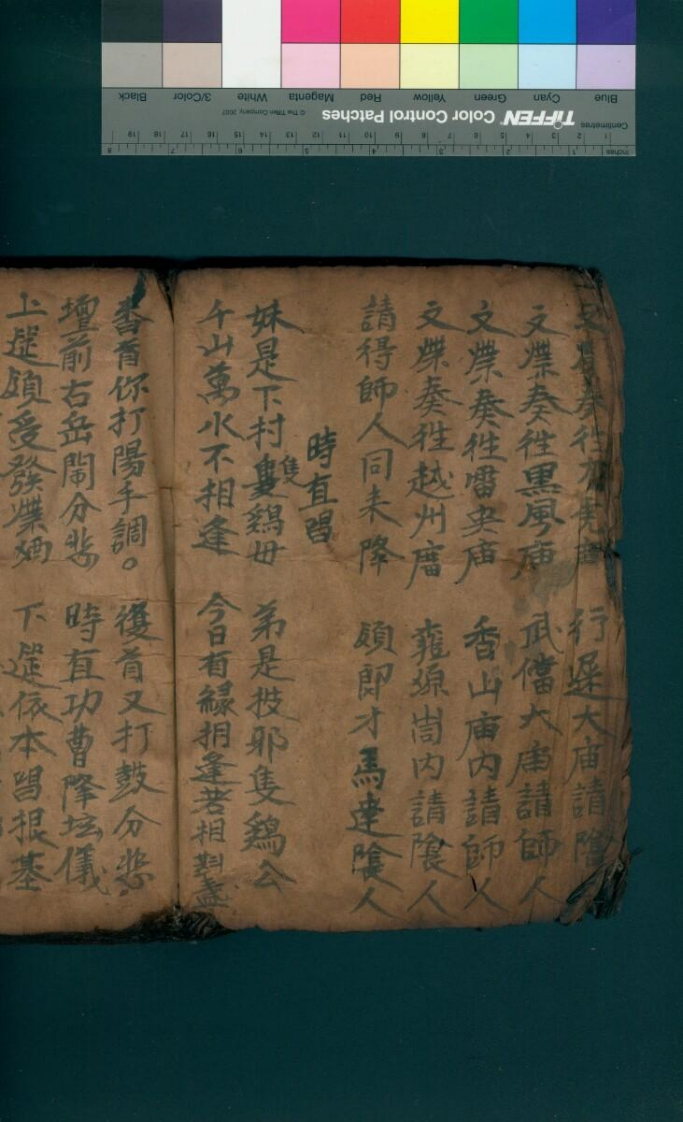 Blue Cyan Green Yellow Red Magenta White 3/Color Black
TIFFEN Color Control Patches © The Tiffen Company, 2007
Centimetres
Inches
行遲大庙請陰
文牒奏徃黒風庙 武儅大庙請師人
文牒奏徃雷奥庙 香山庙内請師人
文牒奏徃越州庿 雍源峝内請陰人
請得師人同来降 願即才馬連陰人
時直唱
妹是下村隻雞毑 弟是投郍隻鷄公
千山萬水不相逢 今日有縁相逢若相對盞
畨首你打陽手調。 復首又打鼓分悲
壇前右岳鬧分悲 時直功曹降坛儀
上筵願受發牒酒 下筵依本唱根基